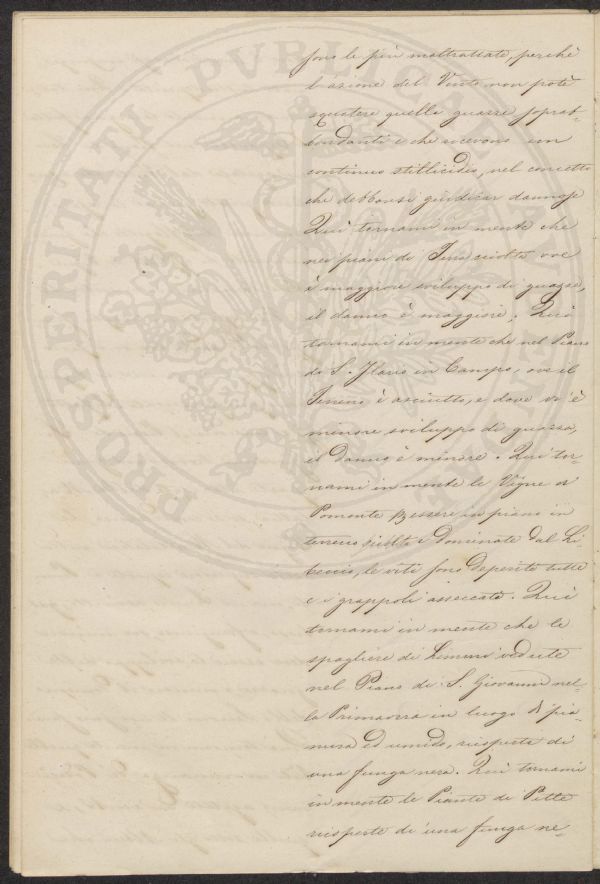 sono le più maltrattate, perchè
l'azione del Vento non potè
squotere quella guazza soprab-
bondanti e che ricevono un
continuo stillicidio, nel concetto
che debbonsi giudicar dannose
Quì tornami in mente che
nei piani di Terra sciolta ove
è maggiore sviluppo di guazza,
il danno è maggiore; Quì
tornami in mente che nel Piano
di S. Ilario in Campo, ove il
Terreno è asciutto, e dove vi è
minore sviluppo di guazza,
il danno è minore. Quì tor-
nami in mente le Vigne a
Pomonte essere in piano in
terreno sciolto e dominate dal Li-
beccio, le viti sono deperite tutte
e i grappoli asseccati. Quì
tornami in mente che le
spagliere di Limoni vedute
nel Piano di S. Giovanni nel-
la Primavera in luogo di pia-
nura ed umido, ricoperte di
una funga nera. Quì tornami
in mente le Piante di Patte
ricoperte di una funga ne-
PROSPERITATI PVBLICAE